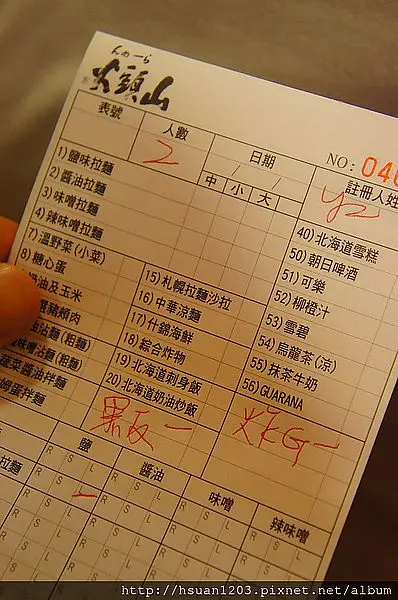 んのーら
火頭山
NO: 040
表號 人數 日期 註冊人姓
2 / / y2
中 小 大
1) 鹽味拉麵
2) 醬油拉麵
3) 味噌拉麵
4) 辣味噌拉麵
7) 溫野菜(小菜)
8) 糖心蛋
奶油及玉米
頰肉
油沾麵(粗麵)
味噌沾麵(粗麵)
蔬菜醬油拌麵
姆蛋拌麵
15) 札幌拉麵沙拉
16) 中華涼麵
17) 什錦海鮮
18) 綜合炸物
19) 北海道刺身飯
20) 北海道奶油炒飯
40) 北海道雪糕
50) 朝日啤酒
51) 可樂
52) 柳橙汁
53) 雪碧
54) 烏龍茶(涼)
55) 抹茶牛奶
56) GUARANA
黑反 一
炸G 一
拉麵 鹽 醬油 味噌 辣味噌
R S L R S L R S L R S L
http://hsuan1203.pixnet.net/album